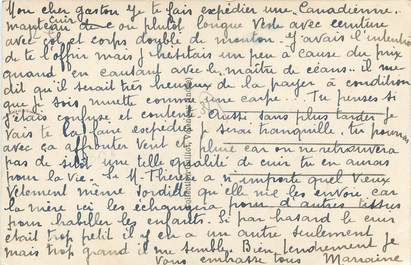 Mon cher Gaston Je te fais expédier une Canadienne.
manteau de cuir ou plutôt longue veste avec ceinture
avec col et corps doublé de mouton. J'avais l'intention
de te l'offrir mais j'hésitais un peu à cause du prix
quand en causant avec le maître de céans.. il me
dit qu'il serait très heureux de la payer à condition
que je sois muette comme une carpe... Tu penses si
j'étais confuse et contente. Aussi sans plus tarder je
vais te la faire expédier je serai tranquille, tu pourras
avec ça affronter vent et pluie car on ne retrouvera
pas de sitôt une telle qualité de cuir tu en auras
pour la vie. Si M. Thérèse a n'importe quel vieux
vêtement même qu'elle me les envoie car
la mère ici les échangera pour d'autres tissus
pour habiller les enfants. Si par hasard le cuir
était trop petit il y en a un autre seulement
mais trop grand il me semble. Bien tendrement je
vous embrasse tous Marraine